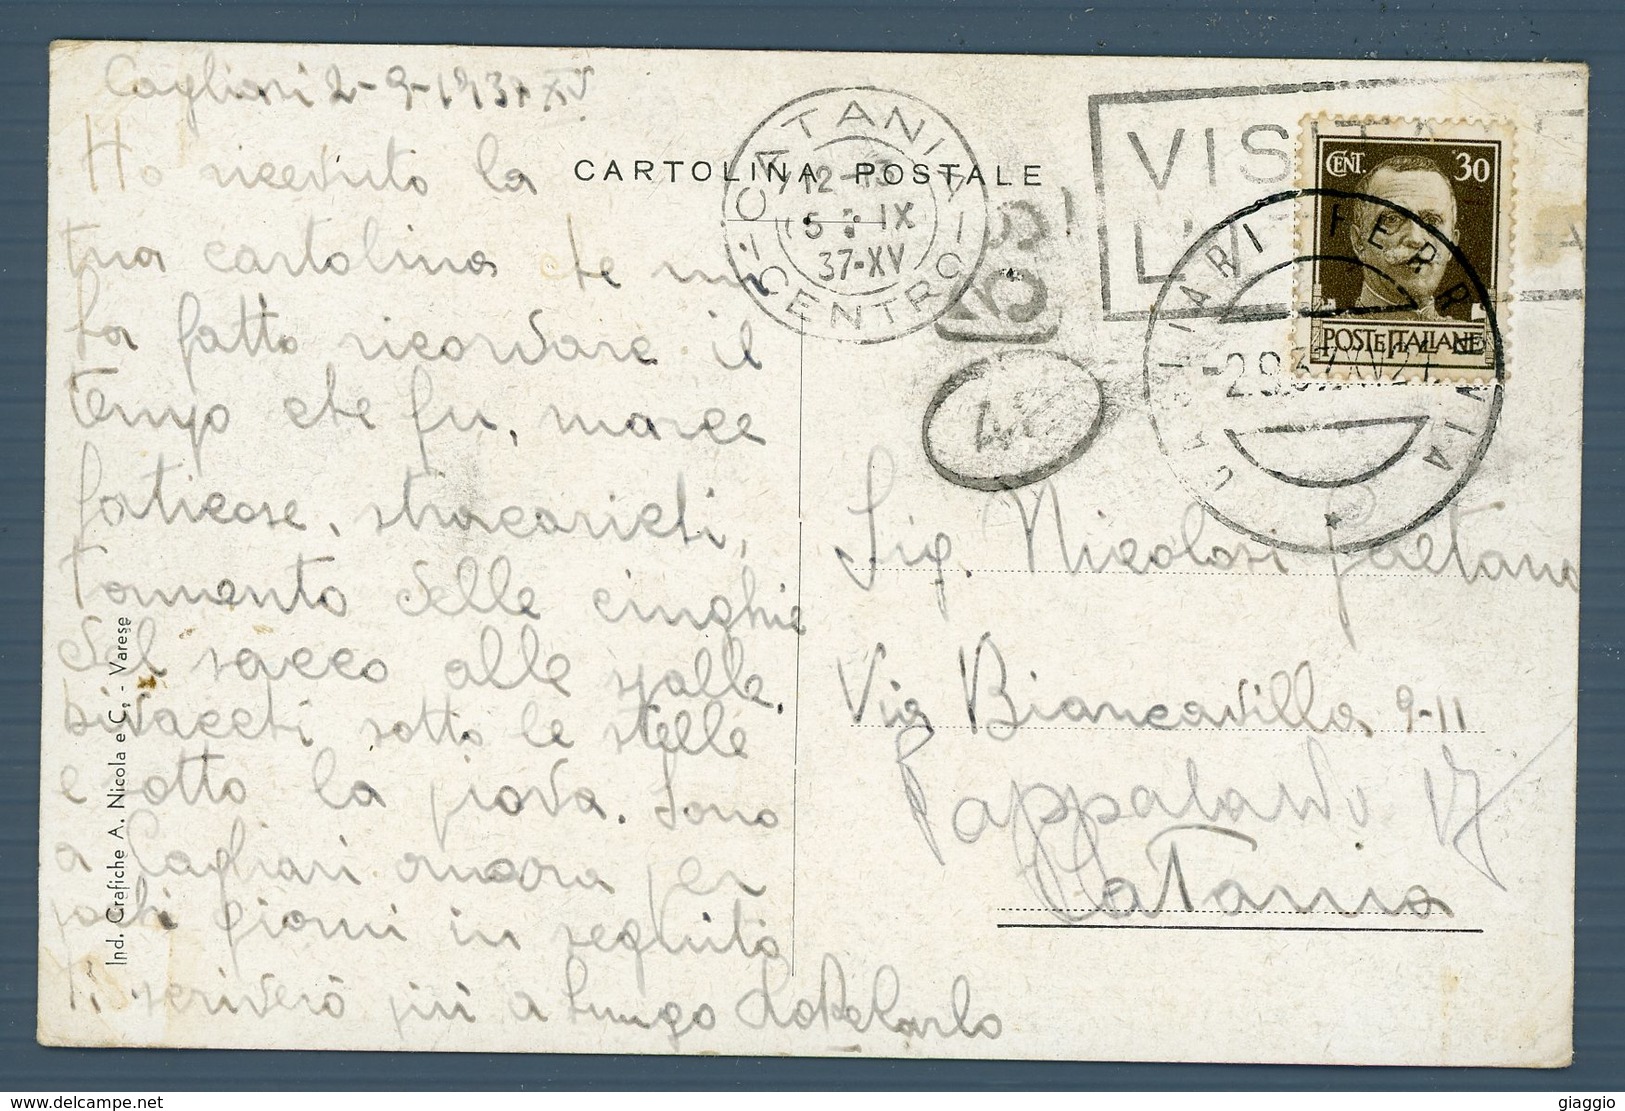 Cagliari 2-9-1937 XV
Ho ricevuto la
tua cartolina che mi
ha fatto ricordare il
tempo che fu, marce
faticose, stracarichi,
tormento delle cinghie
del sacco alle spalle,
bivacchi sotto le stelle
e sotto la piova. Sono
a Cagliari ancora per
pochi giorni in seghuito
ti scriverò più a lungo
CARTOLINA POSTALE
CATANIA
CENTRO
12-13
5 IX
37-XV
VISITA
L'
CENT. 30
POSTE ITALIANE
CAGLIARI FERROVIA
-2.9.37.XV 21
Sig. Nicolosi Gaetano
Via Biancavilla 9-11
Pappalardo 17
Catania
Ind. Grafiche A. Nicola e C. - Varese
delcampe.net
giaggio